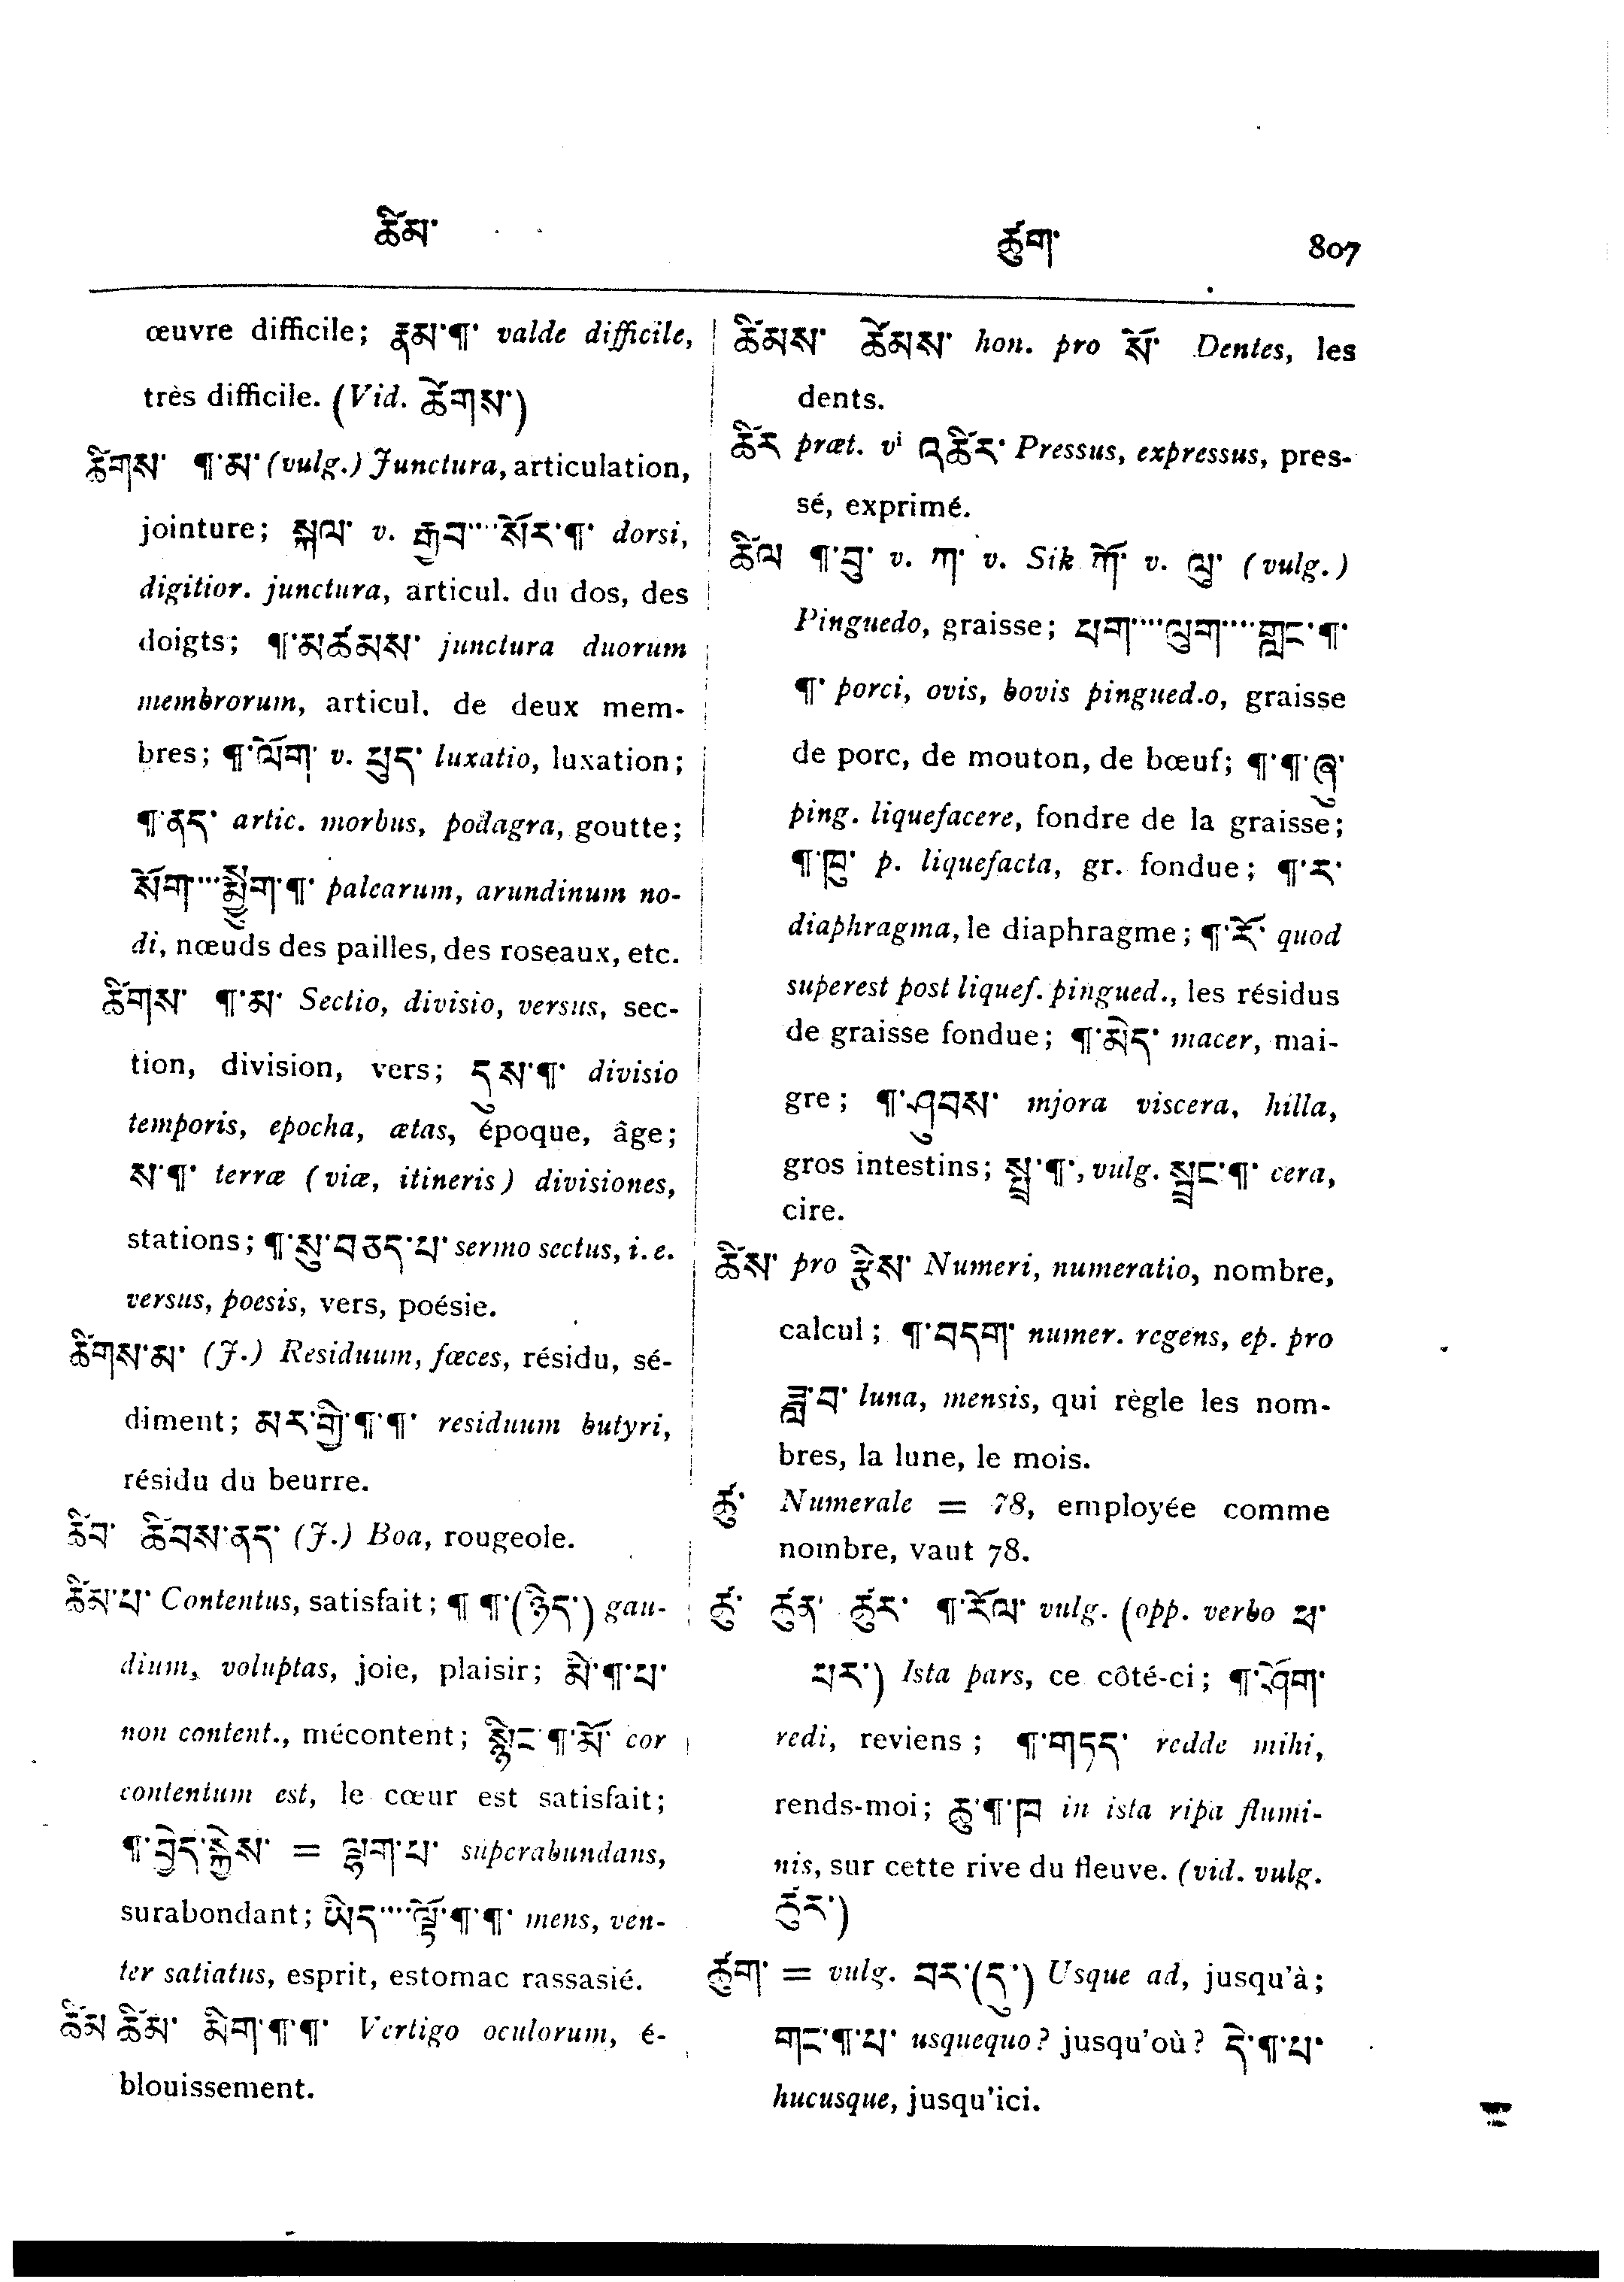 ཚིམ་ ཚུག་ 807
œuvre difficile; རྣམ་¶་ valde difficile,
très difficile. (Vid. ཚོགས་)
ཚིགས་ ¶་མ་ (vulg.) Junctura, articulation,
jointure; སྐལ་ v. རྒྱབ་····སོར་¶་ dorsi,
digitior. junctura, articul. du dos, des
doigts; ¶་མཚམས་ junctura duorum
membrorum, articul. de deux mem-
bres; ¶་ལོག་ v. བུད་ luxatio, luxation;
¶་ནད་ artic. morbus, podagra, goutte;
སོག་····སྨྱིག་¶་ palearum, arundinum no-
di, nœuds des pailles, des roseaux, etc.
ཚིགས་ ¶་མ་ Sectio, divisio, versus, sec-
tion, division, vers; དུས་¶་ divisio
temporis, epocha, ætas, époque, âge;
ས་¶་ terræ (viæ, itineris) divisiones,
stations; ¶་སུ་བཅད་པ་ sermo sectus, i. e.
versus, poesis, vers, poésie.
ཚིགས་མ་ (J.) Residuum, fæces, résidu, sé-
diment; མར་གྱི་¶་¶་ residuum butyri,
résidu du beurre.
ཚིབ་ ཚིབས་ནད་ (J.) Boa, rougeole.
ཚིམ་པ་ Contentus, satisfait; ¶ ¶་(ཉེད་) gau-
dium, voluptas, joie, plaisir; མི་¶་པ་
non content., mécontent; སྙིང་¶་མོ་ cor
contentum est, le cœur est satisfait;
¶་བྱེད་སྐྱེས་ = ལྷག་པ་ superabundans,
surabondant; ཡིད་····ལྟོ་¶་¶་ mens, ven-
ter satiatus, esprit, estomac rassasié.
ཚིམ ཚིམ་ མིག་¶་¶་ Vertigo oculorum, é-
blouissement.
ཚིམས་ ཚེམས་ hon. pro སོ་ Dentes, les
dents.
ཚིར præt. vⁱ འཚིར་ Pressus, expressus, pres-
sé, exprimé.
ཚིལ ¶་བུ་ v. ཀ་ v. Sik ཀོ་ v. ལུ་ (vulg.)
Pinguedo, graisse; ཕག་····ལུག་····གླང་¶་
¶་ porci, ovis, bovis pingued.o, graisse
de porc, de mouton, de bœuf; ¶་¶་ཞུ་
ping. liquefacere, fondre de la graisse;
¶་ཁུ་ p. liquefacta, gr. fondue; ¶་ར་
diaphragma, le diaphragme; ¶་རོ་ quod
superest post liquef. pingued., les résidus
de graisse fondue; ¶་མེད་ macer, mai-
gre; ¶་ཤུབས་ mjora viscera, hilla,
gros intestins; སྤྲ་¶་, vulg. སྤྲང་¶་ cera,
cire.
ཚིས་ pro རྩིས་ Numeri, numeratio, nombre,
calcul; ¶་བདག་ numer. regens, ep. pro
ཟླ་བ་ luna, mensis, qui règle les nom-
bres, la lune, le mois.
ཚུ་ Numerale = 78, employée comme
nombre, vaut 78.
ཚུ་ ཚུན་ ཚུར་ ¶་རོལ་ vulg. (opp. verbo ཕ་
ཕར་) Ista pars, ce côté-ci; ¶་ཤོག་
redi, reviens; ¶་གཏད་ redde mihi,
rends-moi; ཆུ་¶་ཁ in ista ripa flumi-
nis, sur cette rive du fleuve. (vid. vulg.
ཚུར་)
ཚུག་ = vulg. བར་(དུ་) Usque ad, jusqu'à;
གང་¶་པ་ usquequo? jusqu'où? དེ་¶་པ་
hucusque, jusqu'ici.